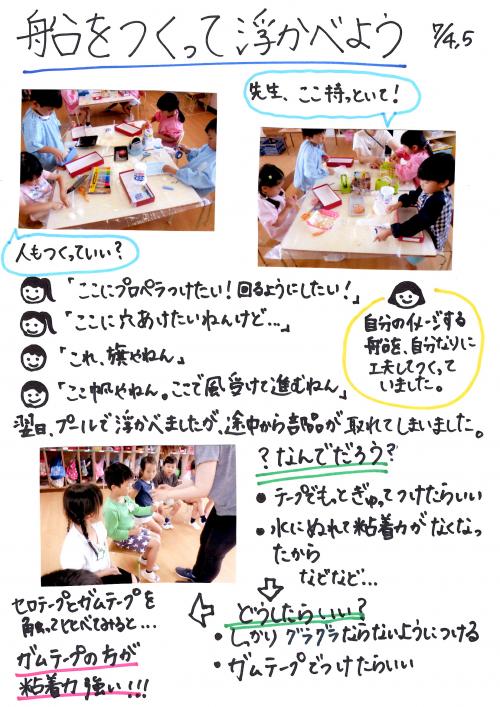 船をつくって浮かべよう 7/4,5
先生、ここ持っといて!
人もつくっていい?
「ここにプロペラつけたい!回るようにしたい!」
「ここに穴あけたいねんけど…」
「これ、旗やねん」
「ここ帆やねん。ここで風受けて進むねん」
自分のイメージする
船を、自分なりに
工夫してつくって
いました。
翌日、プールで浮かべましたが、途中から部品が取れてしまいました。
?なんでだろう?
・テープでもっとぎゅってつけたらいい
・水にぬれて粘着力がなくなっ
たから
などなど…
どうしたらいい?
・しっかりグラグラならないようにつける
・ガムテープでつけたらいい
セロテープとガムテープを
触ってくらべてみると…
ガムテープの方が
粘着力強い!!!